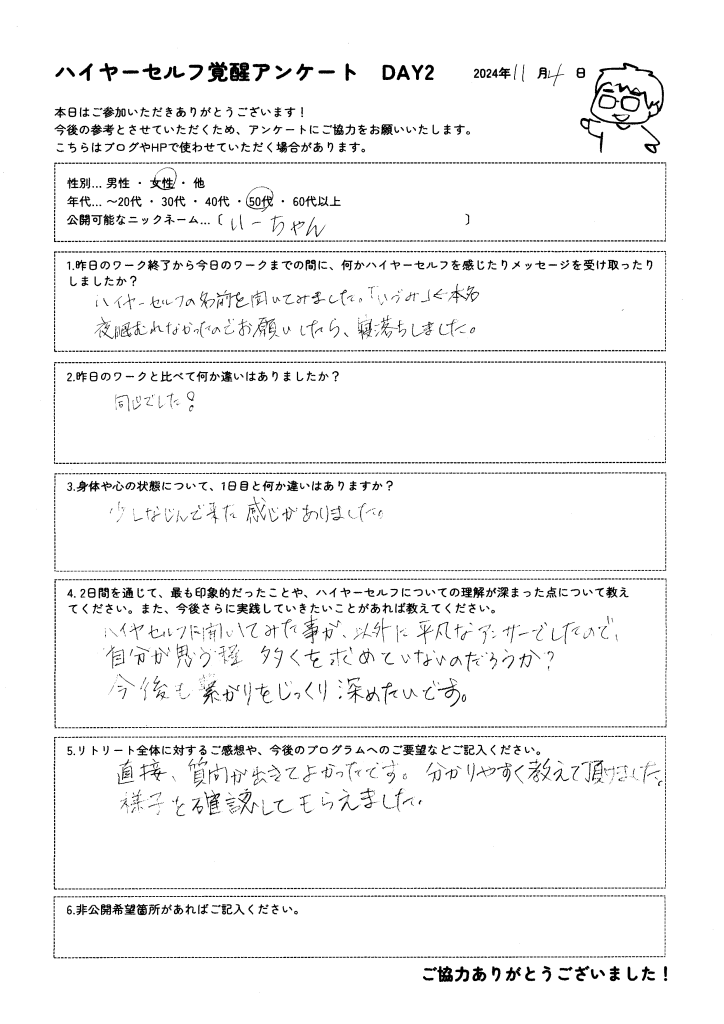 ハイヤーセルフ覚醒アンケート DAY2 2024年11月4日
本日はご参加いただきありがとうございます！
今後の参考とさせていただくため、アンケートにご協力をお願いいたします。
こちらはブログやHPで使わせていただく場合があります。
性別… 男性 ・ 女性 ・ 他
年代… ～20代 ・ 30代 ・ 40代 ・ 50代 ・ 60代以上
公開可能なニックネーム…〔 いーちゃん 〕
1.昨日のワーク終了から今日のワークまでの間に、何かハイヤーセルフを感じたりメッセージを受け取ったり
しましたか？
ハイヤーセルフの名前を聞いてみました。「いづみ」←本名
夜眠むれなかったのでお願いしたら、寝落ちしました。
2.昨日のワークと比べて何か違いはありましたか？
同じでした！
3.身体や心の状態について、1日目と何か違いはありますか？
少しなじんで来た感じがありました。
4. 2日間を通じて、最も印象的だったことや、ハイヤーセルフについての理解が深まった点について教え
てください。また、今後さらに実践していきたいことがあれば教えてください。
ハイヤセルフに聞いてみた事が、以外に平凡なアンサーでしたので、
自分が思う程 多くを求めていないのだろうか？
今後も繋がりをじっくり深めたいです。
5.リトリート全体に対するご感想や、今後のプログラムへのご要望などご記入ください。
直接、質問が出きてよかったです。分かりやすく教えて頂けました。
様子を確認してもらえました。
6.非公開希望箇所があればご記入ください。
ご協力ありがとうございました！